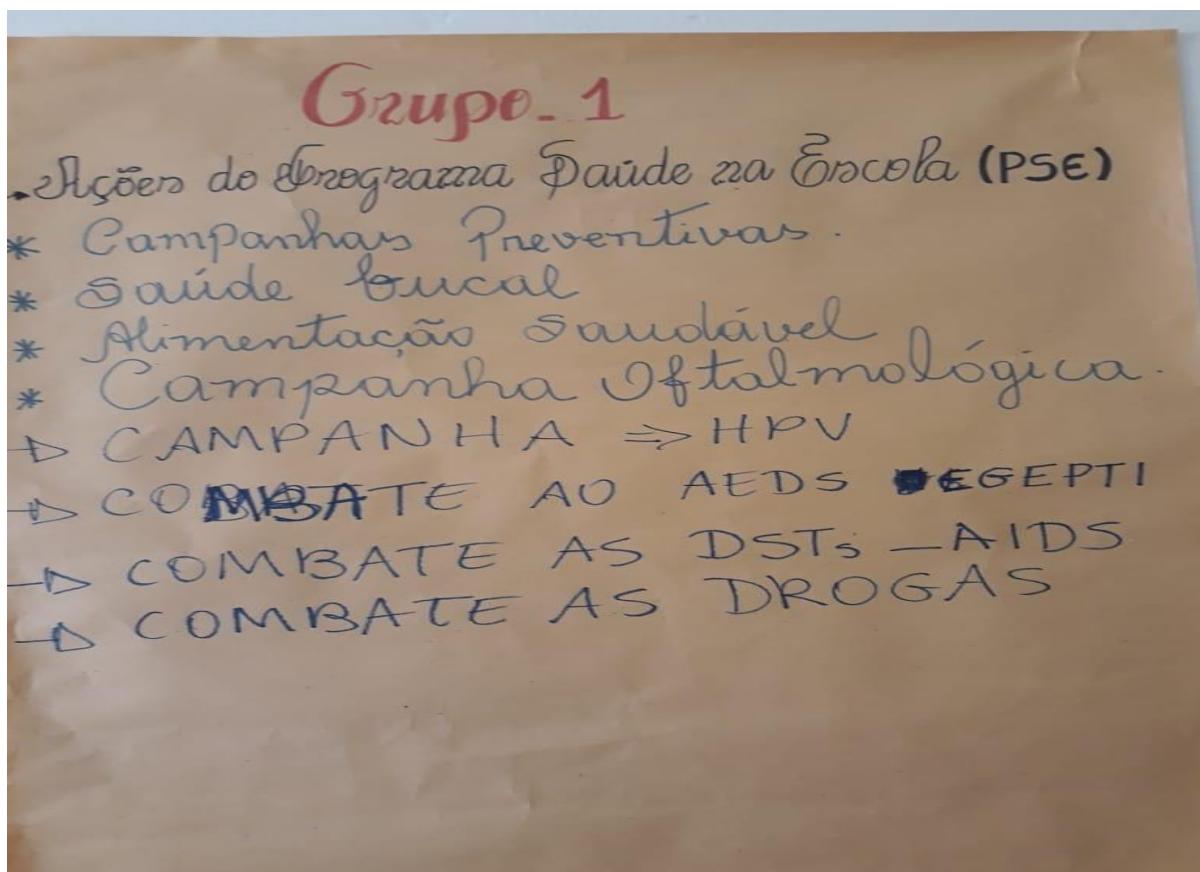 Grupo. 1
. Ações do Programa Saúde na Escola (PSE)
* Campanhas Preventivas.
* Saúde bucal
* Alimentação saudável
* Campanha Oftalmológica.
→ CAMPANHA ⇒ HPV
→ COMBATE AO AEDS EGEPTI
→ COMBATE AS DSTs – AIDS
→ COMBATE AS DROGAS